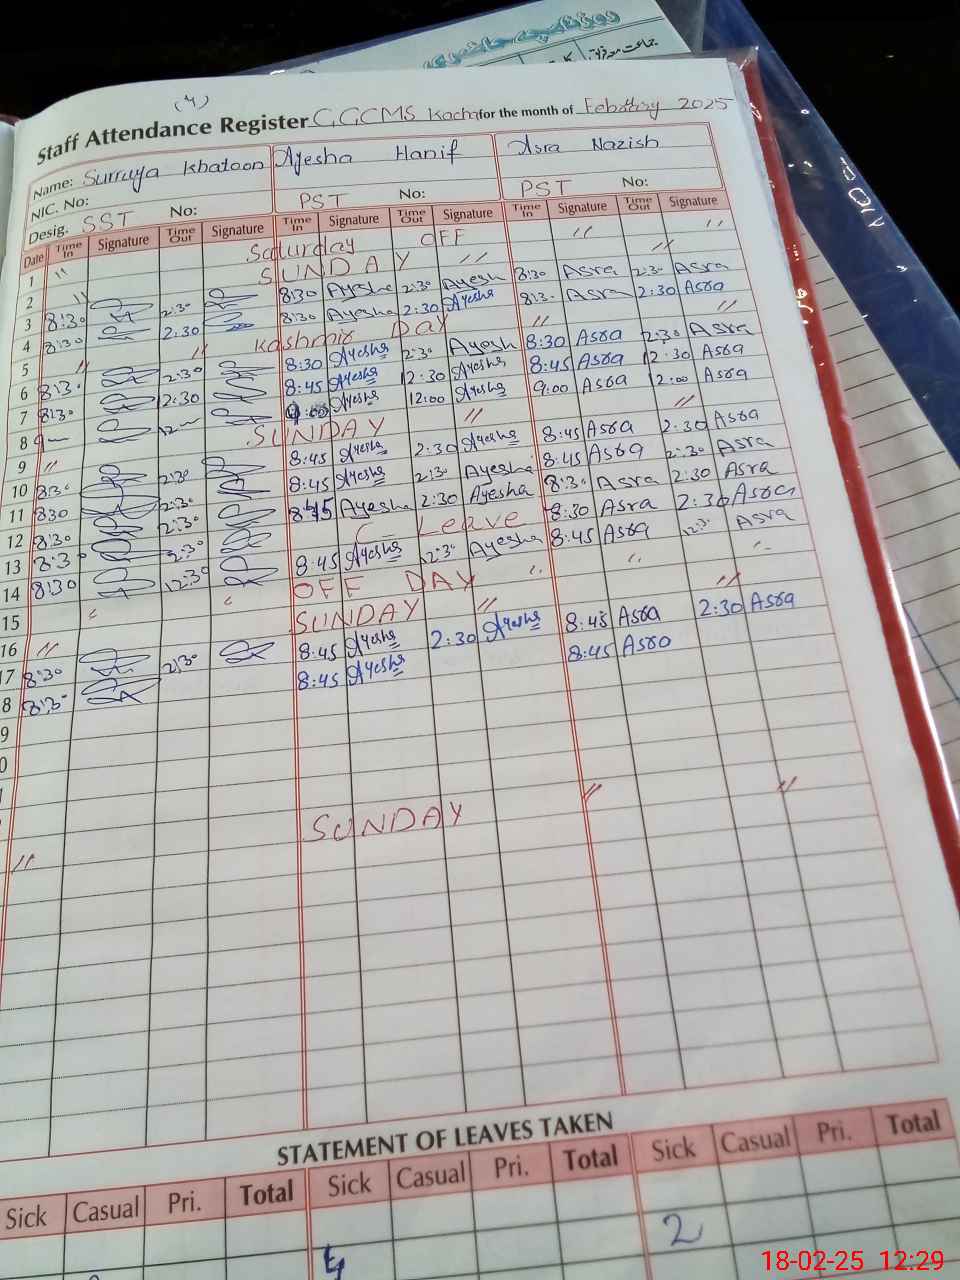 روزنامچہ حاضری
(4)
Staff Attendance Register GGCMS Kacha for the month of February 2025
Name: Surruya Khatoon Ayesha Hanif Asra Nazish
NIC. No:
Desig. SST No: PST No: PST No:
Date Time In Signature Time Out Signature Time In Signature Time Out Signature Time In Signature Time Out Signature
1 " Saturday OFF " "
2 " SUNDAY " "
3 8:30 2:30 8:30 Ayesha 2:30 Ayesh 8:30 Asra 2:30 Asra
4 8:30 2:30 8:30 Ayesha 2:30 Ayesha 8:30 Asra 2:30 Asra
5 " " Kashmir DAY " "
6 8:30 2:30 8:30 Ayesha 2:30 Ayesh 8:30 Asra 2:30 Asra
7 8:30 12:30 8:45 Ayesha 12:30 Ayesha 8:45 Asra 12:30 Asra
8 9— 12— Ayesha 12:00 Ayesha 9:00 Asra 12:00 Asra
9 " SUNDAY " "
10 8:30 2:30 8:45 Ayesha 2:30 Ayesha 8:45 Asra 2:30 Asra
11 830 2:30 8:45 Ayesha 2:30 Ayesha 8:45 Asra 2:30 Asra
12 8:30 2:30 8:45 Ayesha 2:30 Ayesha 8:30 Asra 2:30 Asra
13 8:30 2:30 C Leave 8:30 Asra 2:30 Asra
14 8:30 12:30 8:45 Ayesha 12:30 Ayesha 8:45 Asra 12:30 Asra
15 " " OFF DAY " " "
16 " SUNDAY " "
17 8:30 2:30 8:45 Ayesha 2:30 Ayesha 8:45 Asra 2:30 Asra
8 8:30 8:45 Ayesha 8:45 Asra
9
0
" SUNDAY " "
STATEMENT OF LEAVES TAKEN
Sick Casual Pri. Total Sick Casual Pri. Total Sick Casual Pri. Total
2
18-02-25 12:29